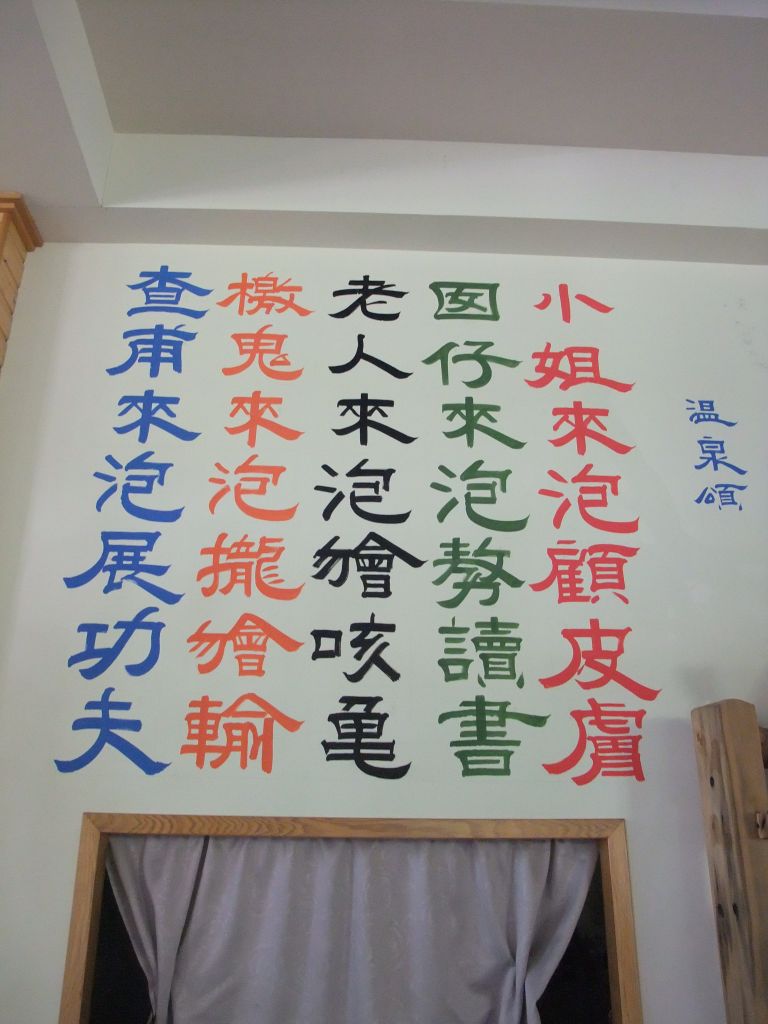 温泉頌
小姐來泡顧皮膚
囡仔來泡𠢕讀書
老人來泡𣍐咳亀
檄鬼來泡攏𣍐輸
查甫來泡展功夫